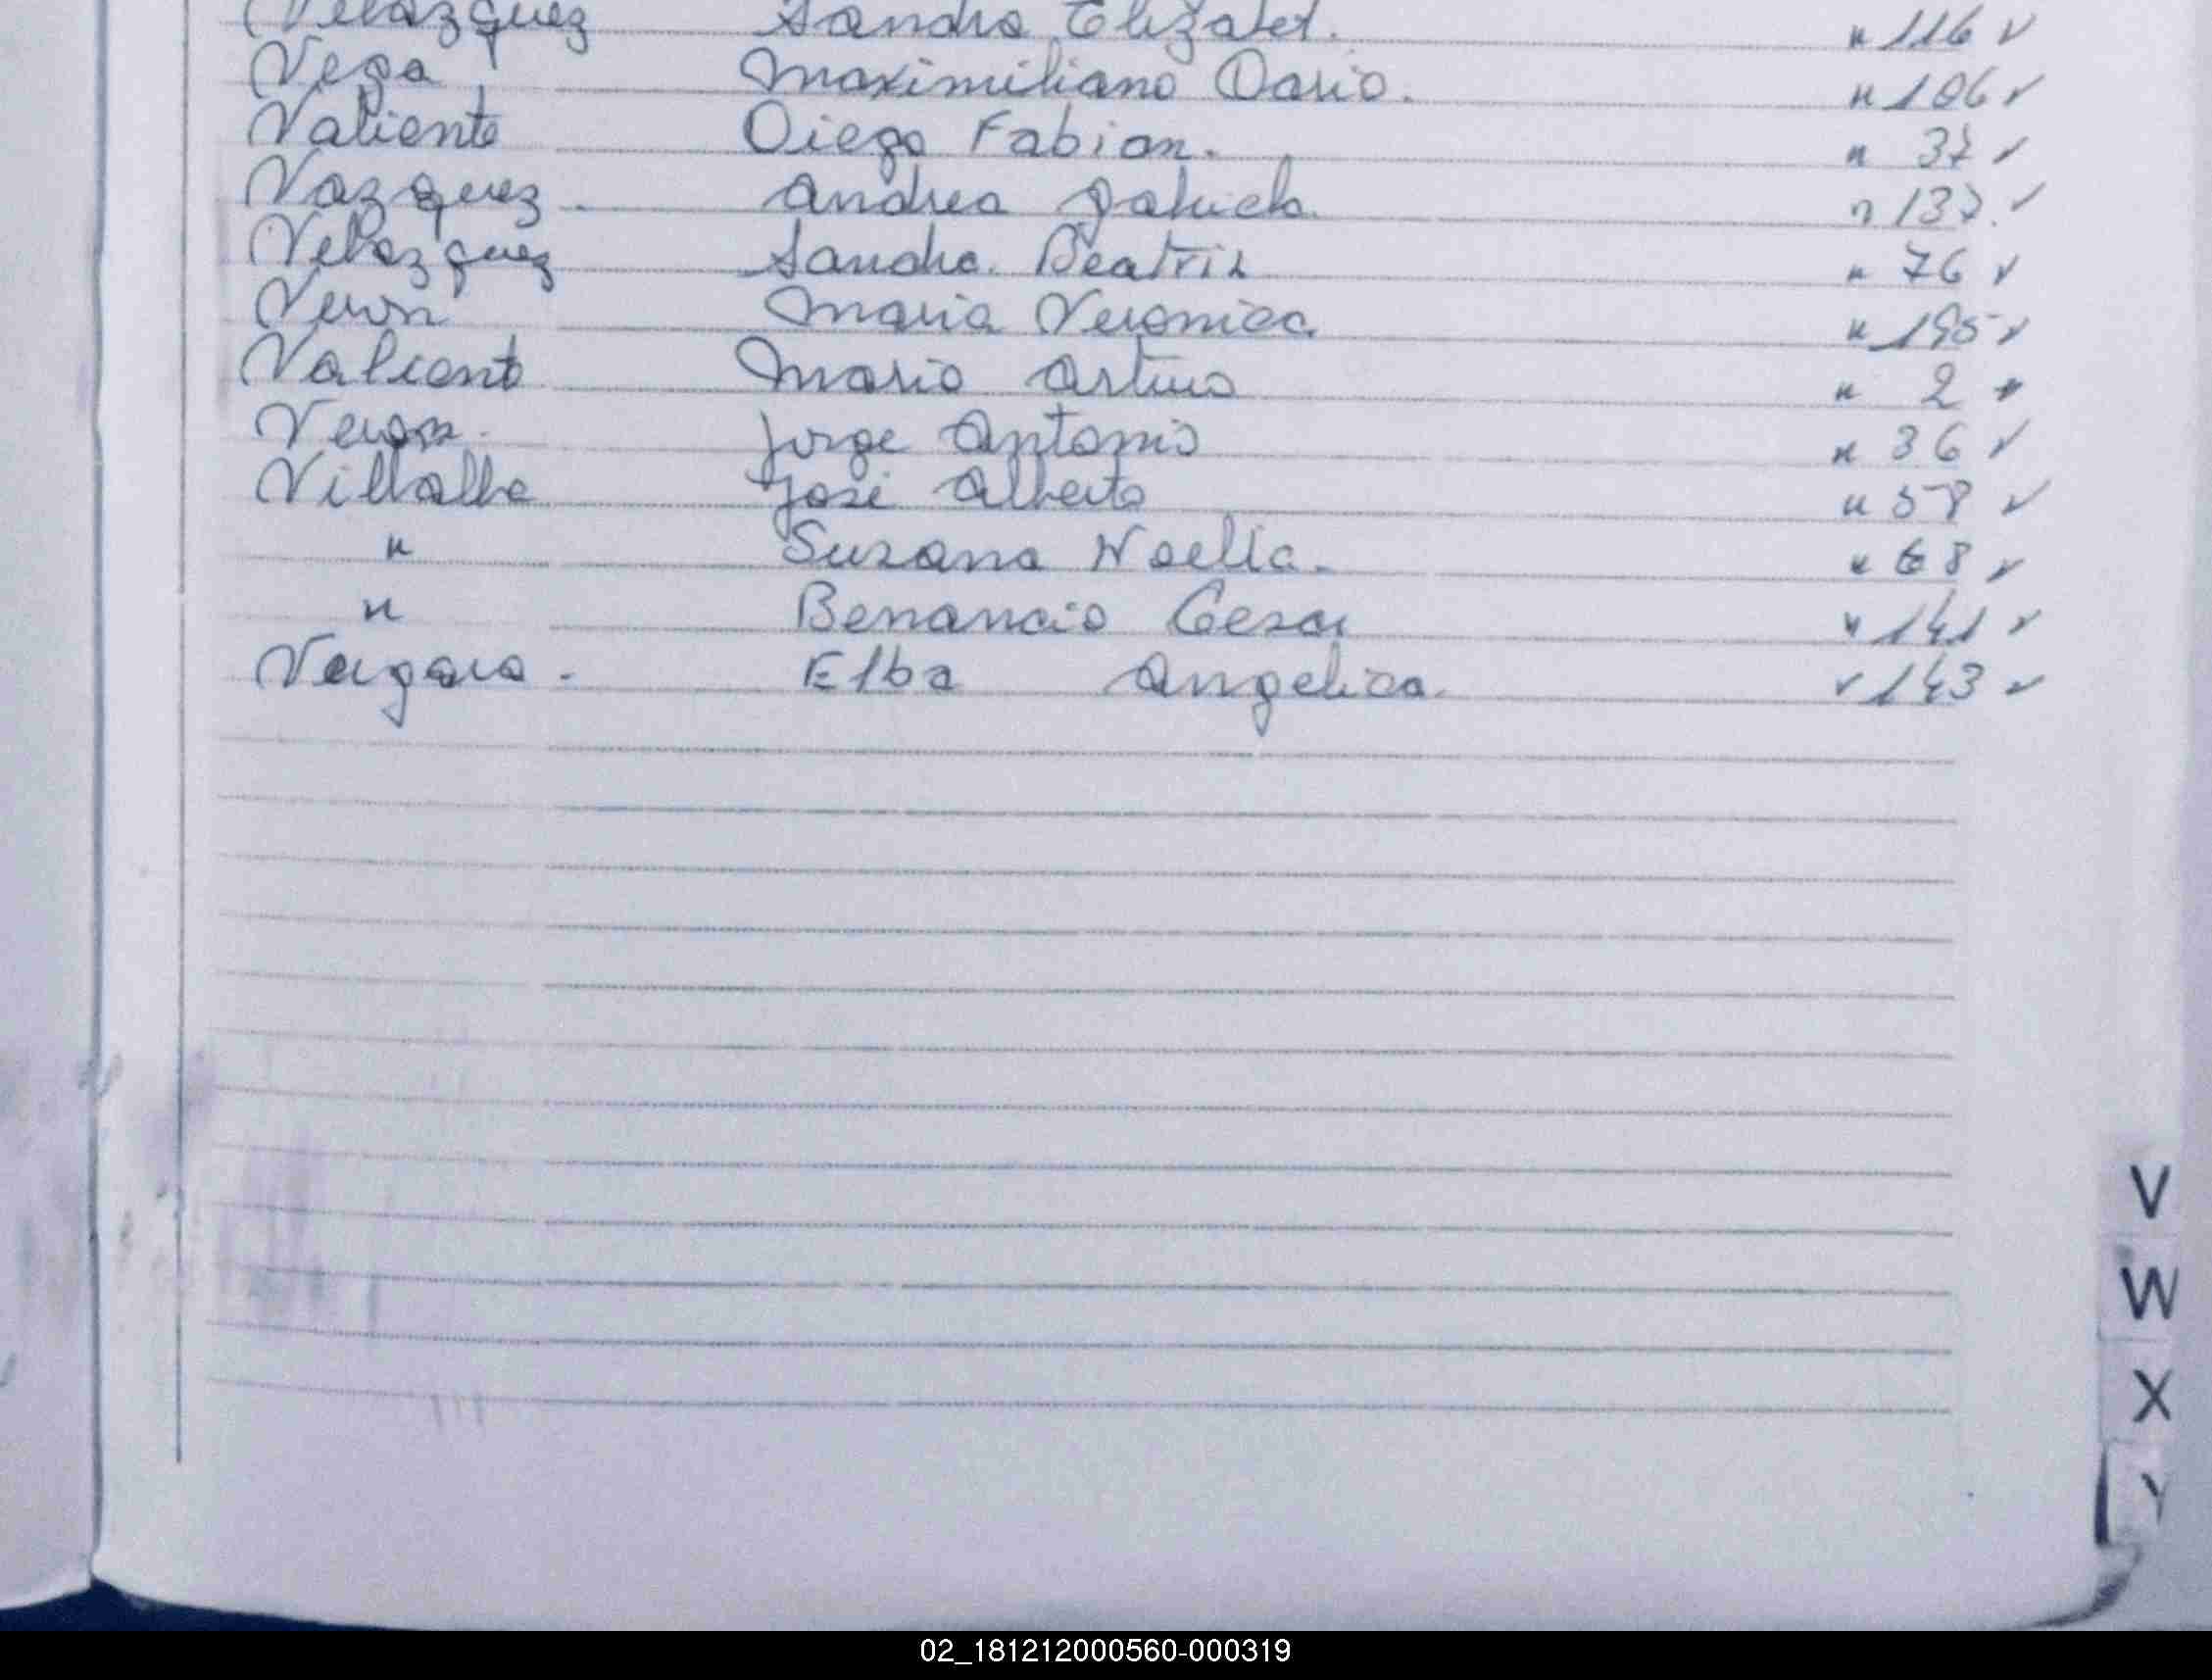 Velazquez Sandra Elizabet. " 116 ✓
Vega Maximiliano Dario. " 106 ✓
Valiente Diego Fabian. " 37 ✓
Vazquez. Andrea Gabriela. " 137. ✓
Velazquez Sandra. Beatriz " 76 ✓
Veron Maria Veronica. " 195 ✓
Valiente Mario Arturo " 2 ✓
Veron. Jorge Antonio " 36 ✓
Villalba José Alberto " 58 ✓
" Susana Noelia. " 68 ✓
" Benancio Cesar " 141 ✓
Vergara. Elba Angelica. " 143 ✓
V
W
X
Y
02_181212000560-000319